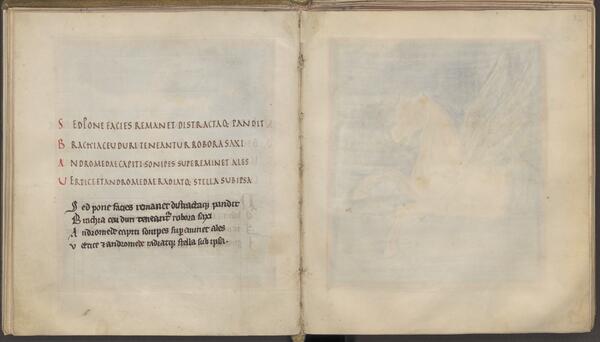 SEDPONE FACIES REMANET DISTRACTAQ; PANDIT
BRACHIA CEU DURI TENEANTUR ROBORA SAXI
ANDROMEDAE CAPITI SONIPES SUPEREMINET ALES
UERTICE ET ANDROMEDAE RADIATQ; STELLA SUB IPSA
Sed pone facies remanet distractaque pandit
Brachia ceu duri teneant robora saxi
Andromede capiti sonipes supeminet ales
vertice & andromede radiatque stella sub ipsa.